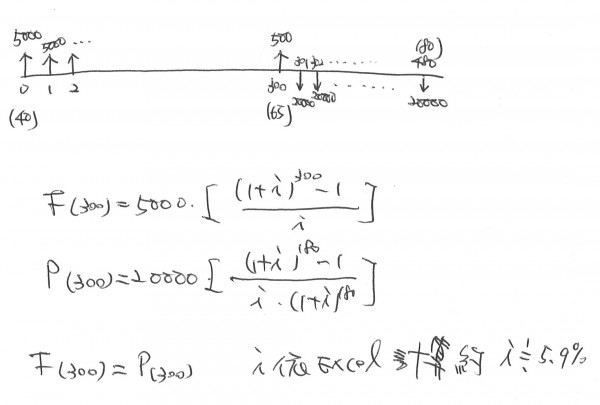 5000 5000 ... 500 (80)
0 1 2 300 301 302 ...... 480
(40) (65) 20000 20000 ...... 20000
F(300) = 5000 · [ (1+i)^300 - 1 / i ]
P(300) = 20000 [ (1+i)^180 - 1 / i · (1+i)^180 ]
F(300) = P(300) i 從 Excel 計算約 i≒5.9%